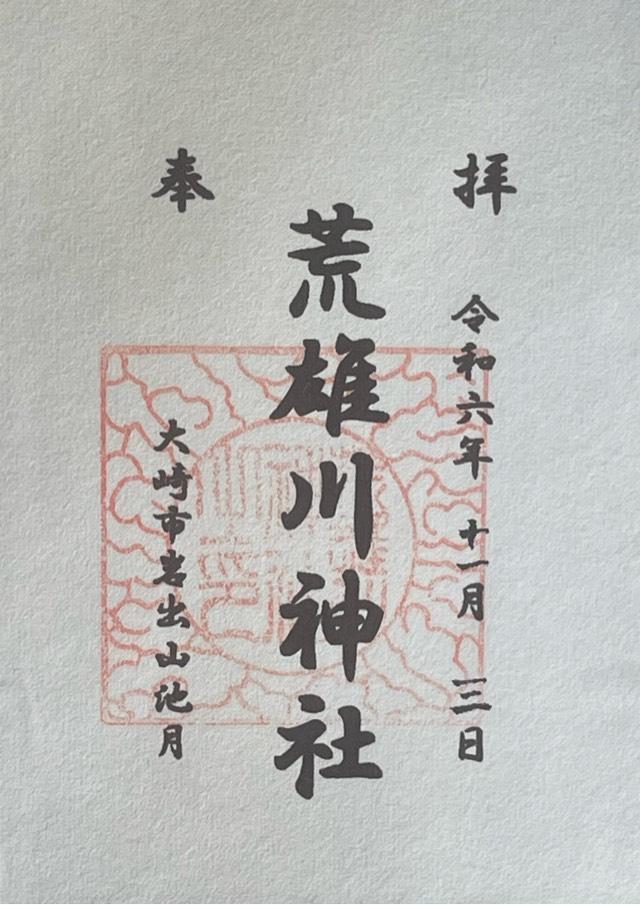 奉拝
令和六年 十一月 三日
荒雄川神社
大崎市岩出山池月